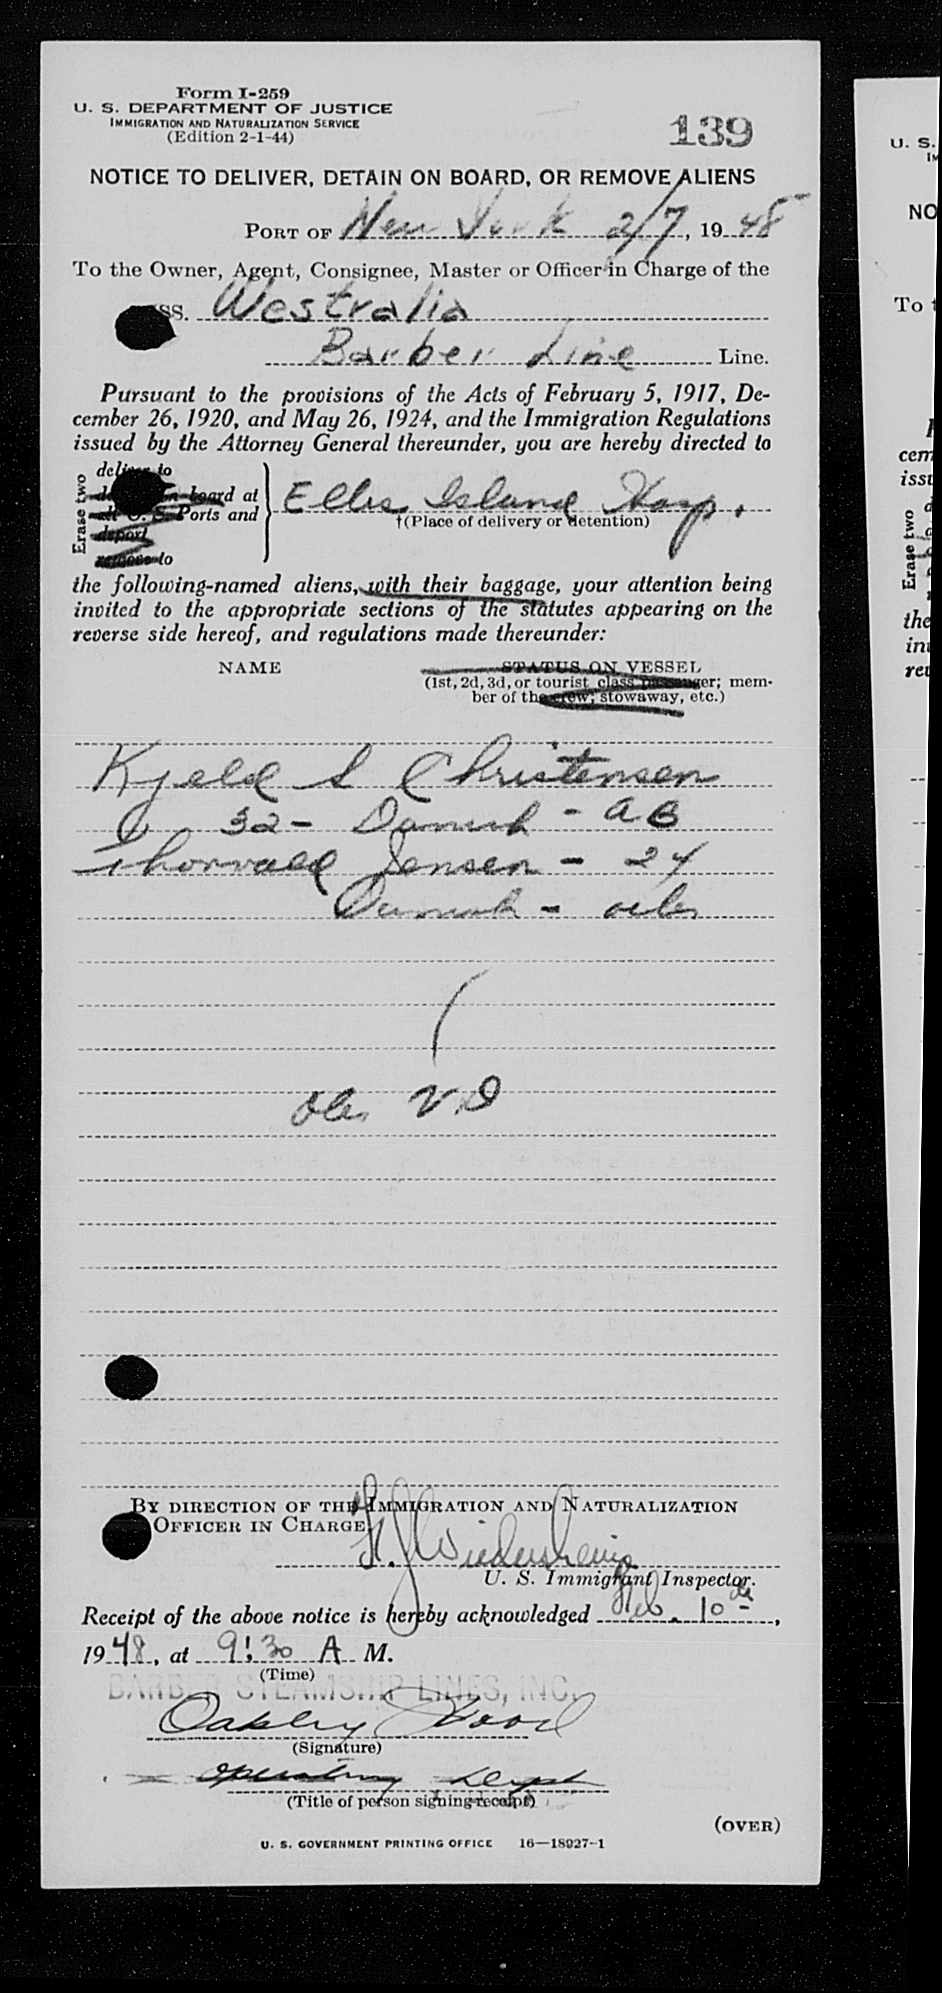 Form I-259
U. S. DEPARTMENT OF JUSTICE
IMMIGRATION AND NATURALIZATION SERVICE
(Edition 2-1-44)
139
NOTICE TO DELIVER, DETAIN ON BOARD, OR REMOVE ALIENS
PORT OF New York 2/7, 1948
To the Owner, Agent, Consignee, Master or Officer in Charge of the
SS. Westralia
Barber Line Line.
Pursuant to the provisions of the Acts of February 5, 1917, De-
cember 26, 1920, and May 26, 1924, and the Immigration Regulations
issued by the Attorney General thereunder, you are hereby directed to
Erase two
deliver to
on board at
all U. S. Ports and
deport
remove to
Ellis Island Hosp.
†(Place of delivery or detention)
the following-named aliens, with their baggage, your attention being
invited to the appropriate sections of the statutes appearing on the
reverse side hereof, and regulations made thereunder:
NAME STATUS ON VESSEL
(1st, 2d, 3d, or tourist class passenger; mem-
ber of the crew; stowaway, etc.)
Kjeld S Christensen
32 - Danish - AB
Thorvald Jensen - 24
Danish - oiler
V.D
BY DIRECTION OF THE IMMIGRATION AND NATURALIZATION
OFFICER IN CHARGE
U. S. Immigrant Inspector.
Receipt of the above notice is hereby acknowledged Feb. 10th,
1948, at 9:30 A M.
(Time)
BARBER STEAMSHIP LINES, INC.
Oakley Wood
(Signature)
Operating Dept
(Title of person signing receipt)
(OVER)
U. S. GOVERNMENT PRINTING OFFICE 16—18927-1
U. S.
NO
To
cem
issu
Erase two
the
inv
rev